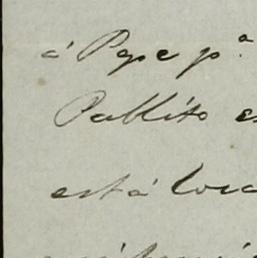 á Pepe pª
Pablito es
está loca